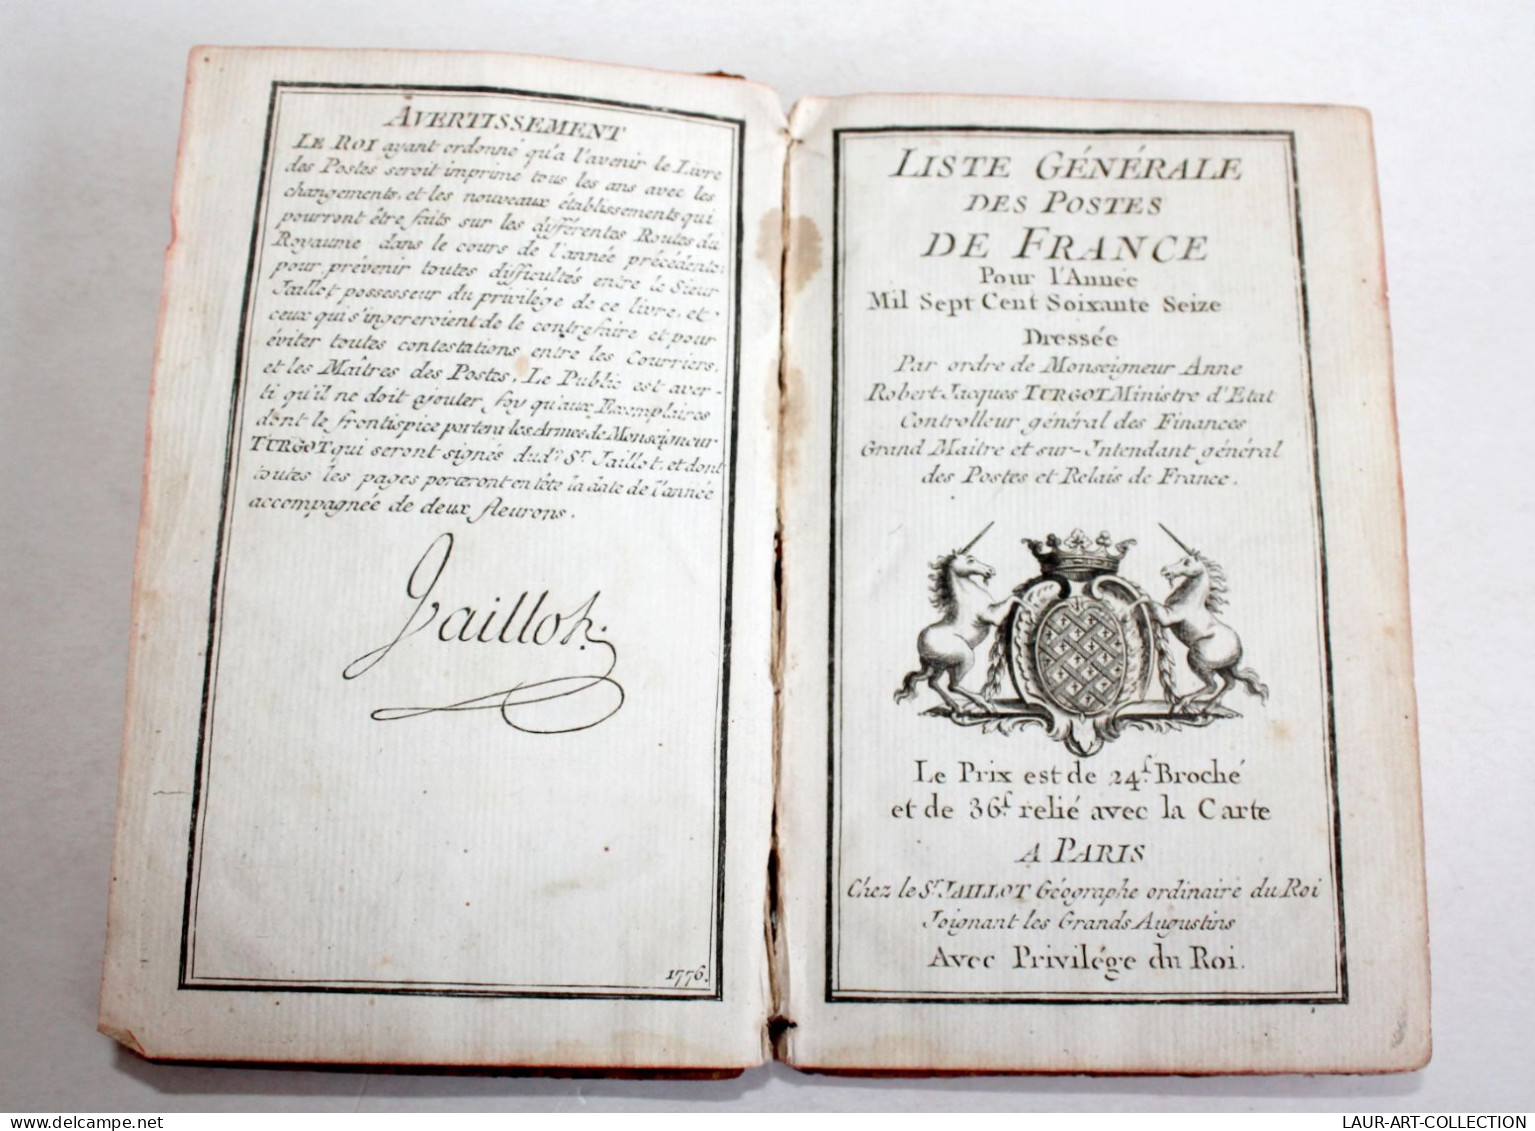 AVERTISSEMENT
LE ROI ayant ordonné qu'a l'avenir le Livre
des Postes seroit imprimé tous les ans avec les
changements, et les nouveaux établissements qui
pourront être faits sur les différentes Routes du
Royaume dans le cours de l'année précédente;
pour prévenir toutes difficultés entre le Sieur
Jaillot possesseur du privilége de ce livre, et
ceux qui s'ingereroient de le contrefaire et pour
éviter toutes contestations entre les Courriers,
et les Maîtres des Postes, Le Public est aver-
ti qu'il ne doit ajouter foy qu'aux Exemplaires
dont le frontispice portera les Armes de Monseigneur
TURGOT qui seront signés dud. Sr. Jaillot, et dont
toutes les pages porteront en tête la date de l'année
accompagnée de deux fleurons.
Jaillot.
1776.
LISTE GÉNÉRALE
DES POSTES
DE FRANCE
Pour l'Année
Mil Sept Cent Soixante Seize
Dressée
Par ordre de Monseigneur Anne
Robert Jacques TURGOT Ministre d'Etat
Controlleur général des Finances
Grand Maitre et sur-Intendant général
des Postes et Relais de France.
Le Prix est de 24ſ. Broché
et de 36ſ. relié avec la Carte
A PARIS
Chez le Sr. JAILLOT Géographe ordinaire du Roi
Joignant les Grands Augustins
Avec Privilége du Roi.
delcampe.net
LAUR-ART-COLLECTION